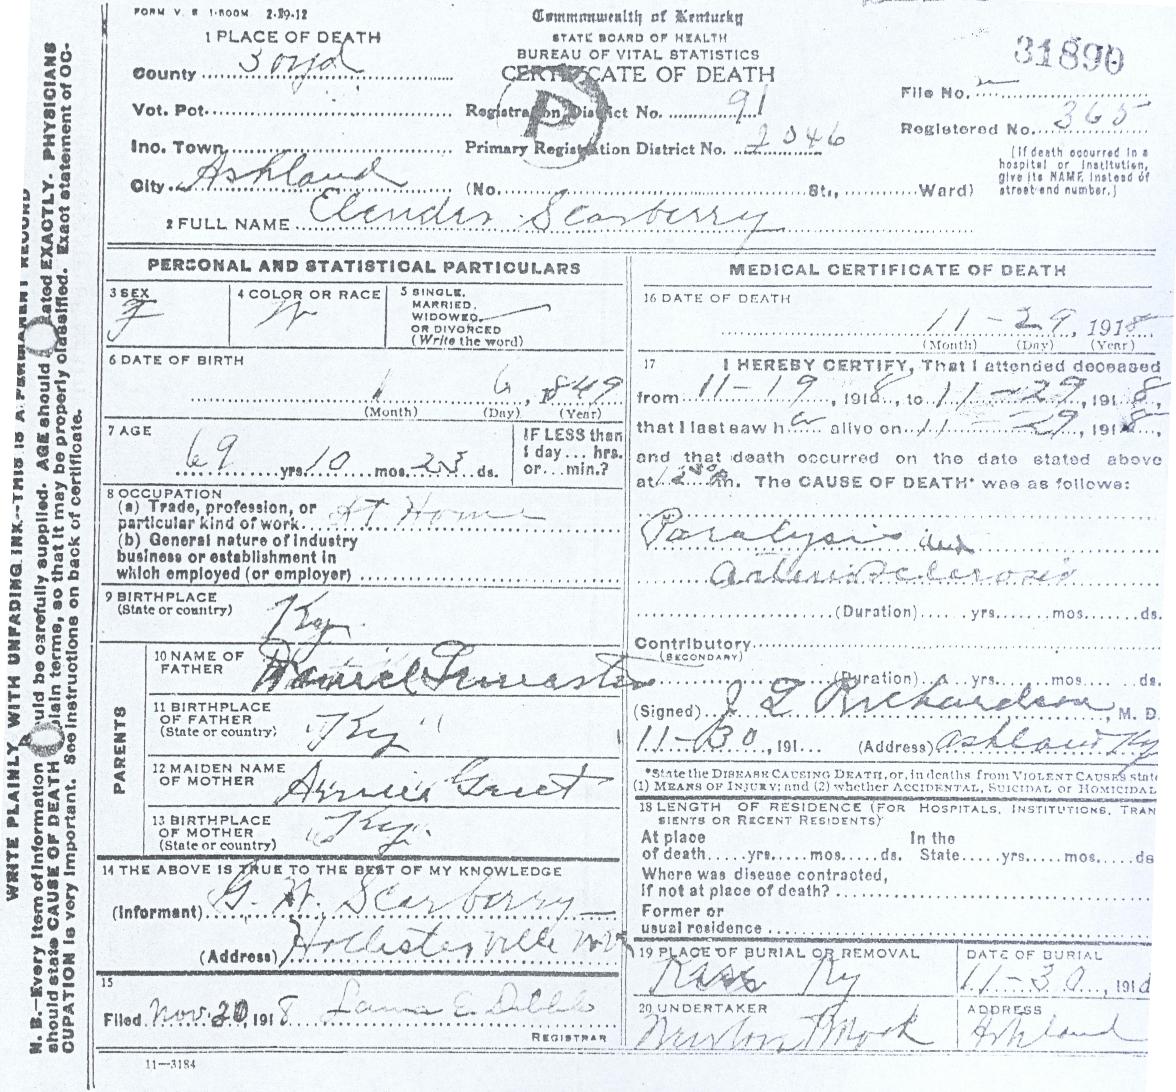 FORM V. S 1-500M 2-19-12
Commonwealth of Kentucky
STATE BOARD OF HEALTH
BUREAU OF VITAL STATISTICS
CERTIFICATE OF DEATH
31890
1 PLACE OF DEATH
County
Vot. Pot.
Registration District No. 91
File No.
Registered No. 365
Inc. Town
Primary Registration District No. 2046
(If death occurred in a
hospital or institution,
give its NAME instead of
street end number.)
City Ashland (No. St., Ward)
P
2 FULL NAME Scarberry
PERSONAL AND STATISTICAL PARTICULARS
3 SEX
F
4 COLOR OR RACE
W
5 SINGLE,
MARRIED,
WIDOWED
OR DIVORCED
(Write the word)
6 DATE OF BIRTH
1 6, 1849
(Month) (Day) (Year)
7 AGE
69 yrs. 10 mos. 23 ds.
IF LESS than
1 day... hrs.
or... min.?
8 OCCUPATION
(a) Trade, profession, or
particular kind of work At Home
(b) General nature of industry
business or establishment in
which employed (or employer)
9 BIRTHPLACE
(State or country)
Ky
PARENTS
10 NAME OF
FATHER
Daniel
11 BIRTHPLACE
OF FATHER
(State or country)
Ky
12 MAIDEN NAME
OF MOTHER
13 BIRTHPLACE
OF MOTHER
(State or country)
Ky
14 THE ABOVE IS TRUE TO THE BEST OF MY KNOWLEDGE
(Informant) G. W. Scarberry
(Address)
15
Filed Nov. 30, 1918
REGISTRAR
11—3184
MEDICAL CERTIFICATE OF DEATH
16 DATE OF DEATH
11-29, 1918
(Month) (Day) (Year)
17 I HEREBY CERTIFY, That I attended deceased
from 11-19, 1918, to 11-29, 1918,
that I last saw her alive on 11-29, 1918,
and that death occurred on the date stated above
at m. The CAUSE OF DEATH* was as follows:
Paralysis and
arteriosclerosis
(Duration) yrs. mos. ds.
Contributory
(SECONDARY)
(Duration) yrs. mos. ds.
(Signed) Richardson, M. D.
11-30, 191 (Address) Ashland Ky
*State the DISEASE CAUSING DEATH, or, in deaths from VIOLENT CAUSES state
(1) MEANS OF INJURY; and (2) whether ACCIDENTAL, SUICIDAL or HOMICIDAL
18 LENGTH OF RESIDENCE (FOR HOSPITALS, INSTITUTIONS, TRAN
SIENTS OR RECENT RESIDENTS)
At place In the
of death yrs. mos. ds. State yrs. mos. ds
Where was disease contracted,
if not at place of death?
Former or
usual residence
19 PLACE OF BURIAL OR REMOVAL
Ky
DATE OF BURIAL
11-30, 191
20 UNDERTAKER
ADDRESS
Ashland
WRITE PLAINLY WITH UNFADING INK--THIS IS A PERMANENT RECORD
N. B.—Every item of information should be carefully supplied. AGE should stated EXACTLY. PHYSICIANS
should state CAUSE OF DEATH plain terms, so that it may be properly classified. Exact statement of OC-
CUPATION is very important. See instructions on back of certificate.